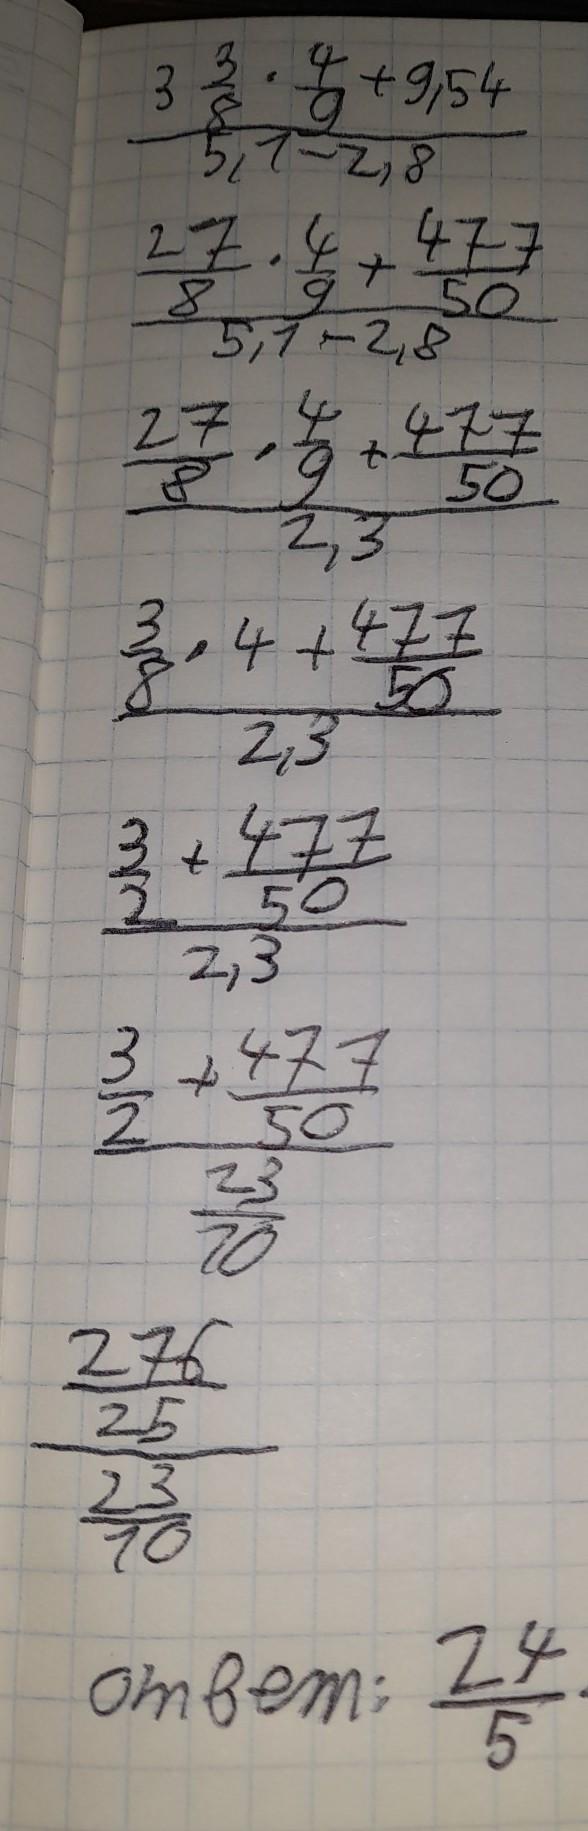 3 3/8 · 4/9 + 9,54
5,1 - 2,8
27/8 · 4/9 + 477/50
5,1 - 2,8
27/8 · 4/9 + 477/50
2,3
3/8 · 4 + 477/50
2,3
3/2 + 477/50
2,3
3/2 + 477/50
23/10
276/25
23/10
ответ: 24/5.